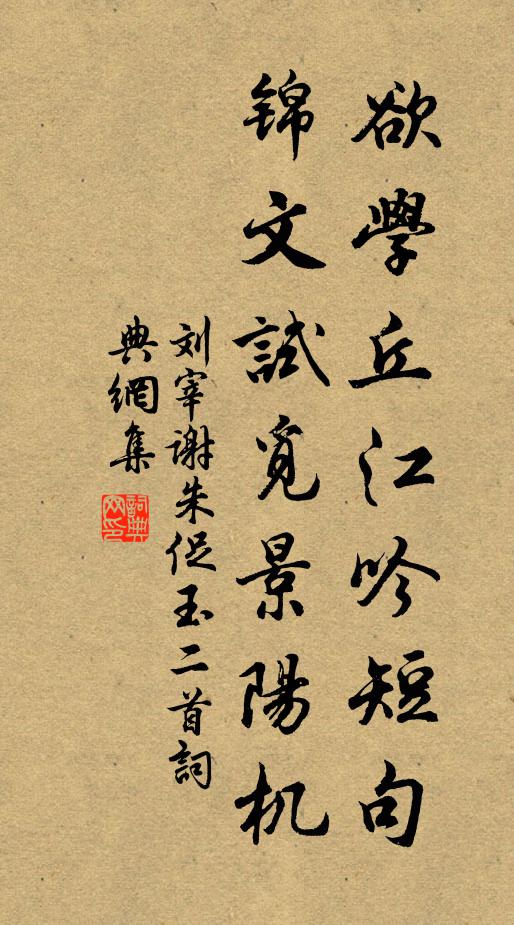 欲學丘江吟短句
锦文試覓景陽机
刘宰谢朱促玉二首詞
典網集
詞典網印